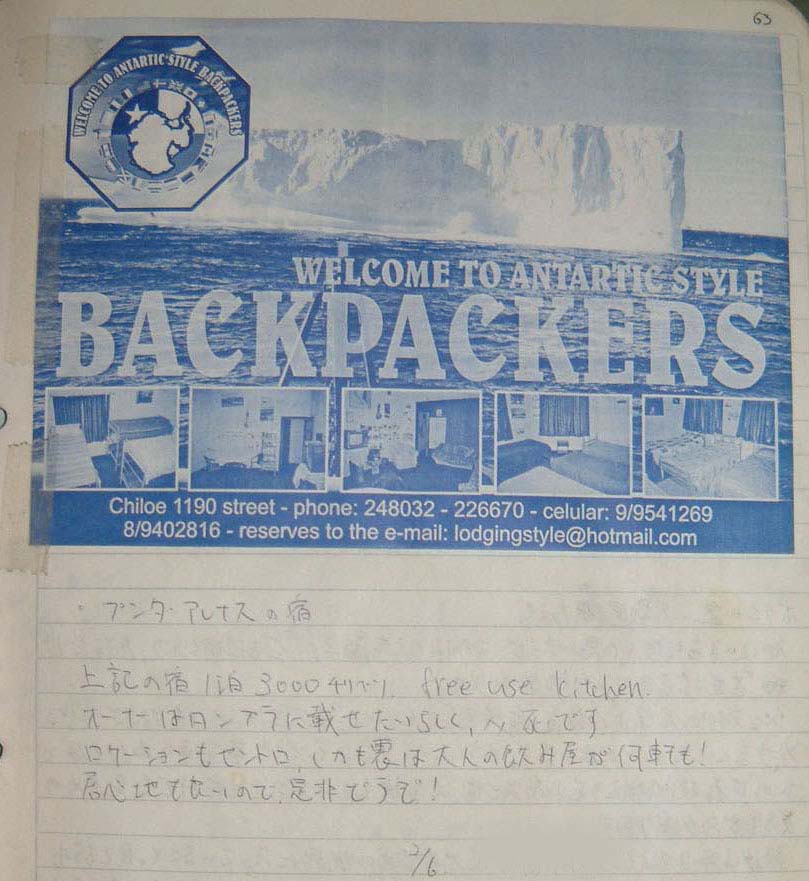 63
WELCOME TO ANTARTIC STYLE BACKPACKERS
WELCOME TO ANTARTIC STYLE
BACKPACKERS
Chiloe 1190 street - phone: 248032 - 226670 - celular: 9/9541269
8/9402816 - reserves to the e-mail: lodgingstyle@hotmail.com
・プンタ・アレナスの宿
上記の宿 1泊 3000 チリペソ. free use kitchen.
オーナーはロンプラに載せたいらしく, 必死です
ロケーションもセントロ, しかも裏は大人の飲み屋が何軒も!
居心地も良いので, 是非どうぞ!
2/6